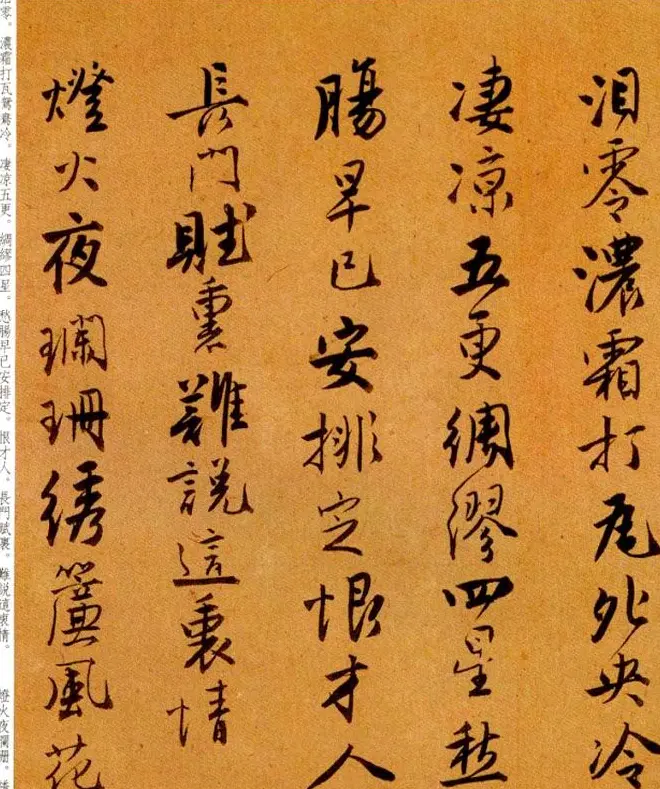 泪零濃霜打瓦夗央冷
凄凉五更綢繆四星愁
腸早已安排定恨才人
長門賦裏難説這衷情
燈火夜瓓珊綉簾風花
零。濃霜打瓦鴛鴦冷。凄凉五更。綢繆四星。愁腸早已安排定。恨才人。長門賦裏。難説這衷情。燈火夜瓓珊。